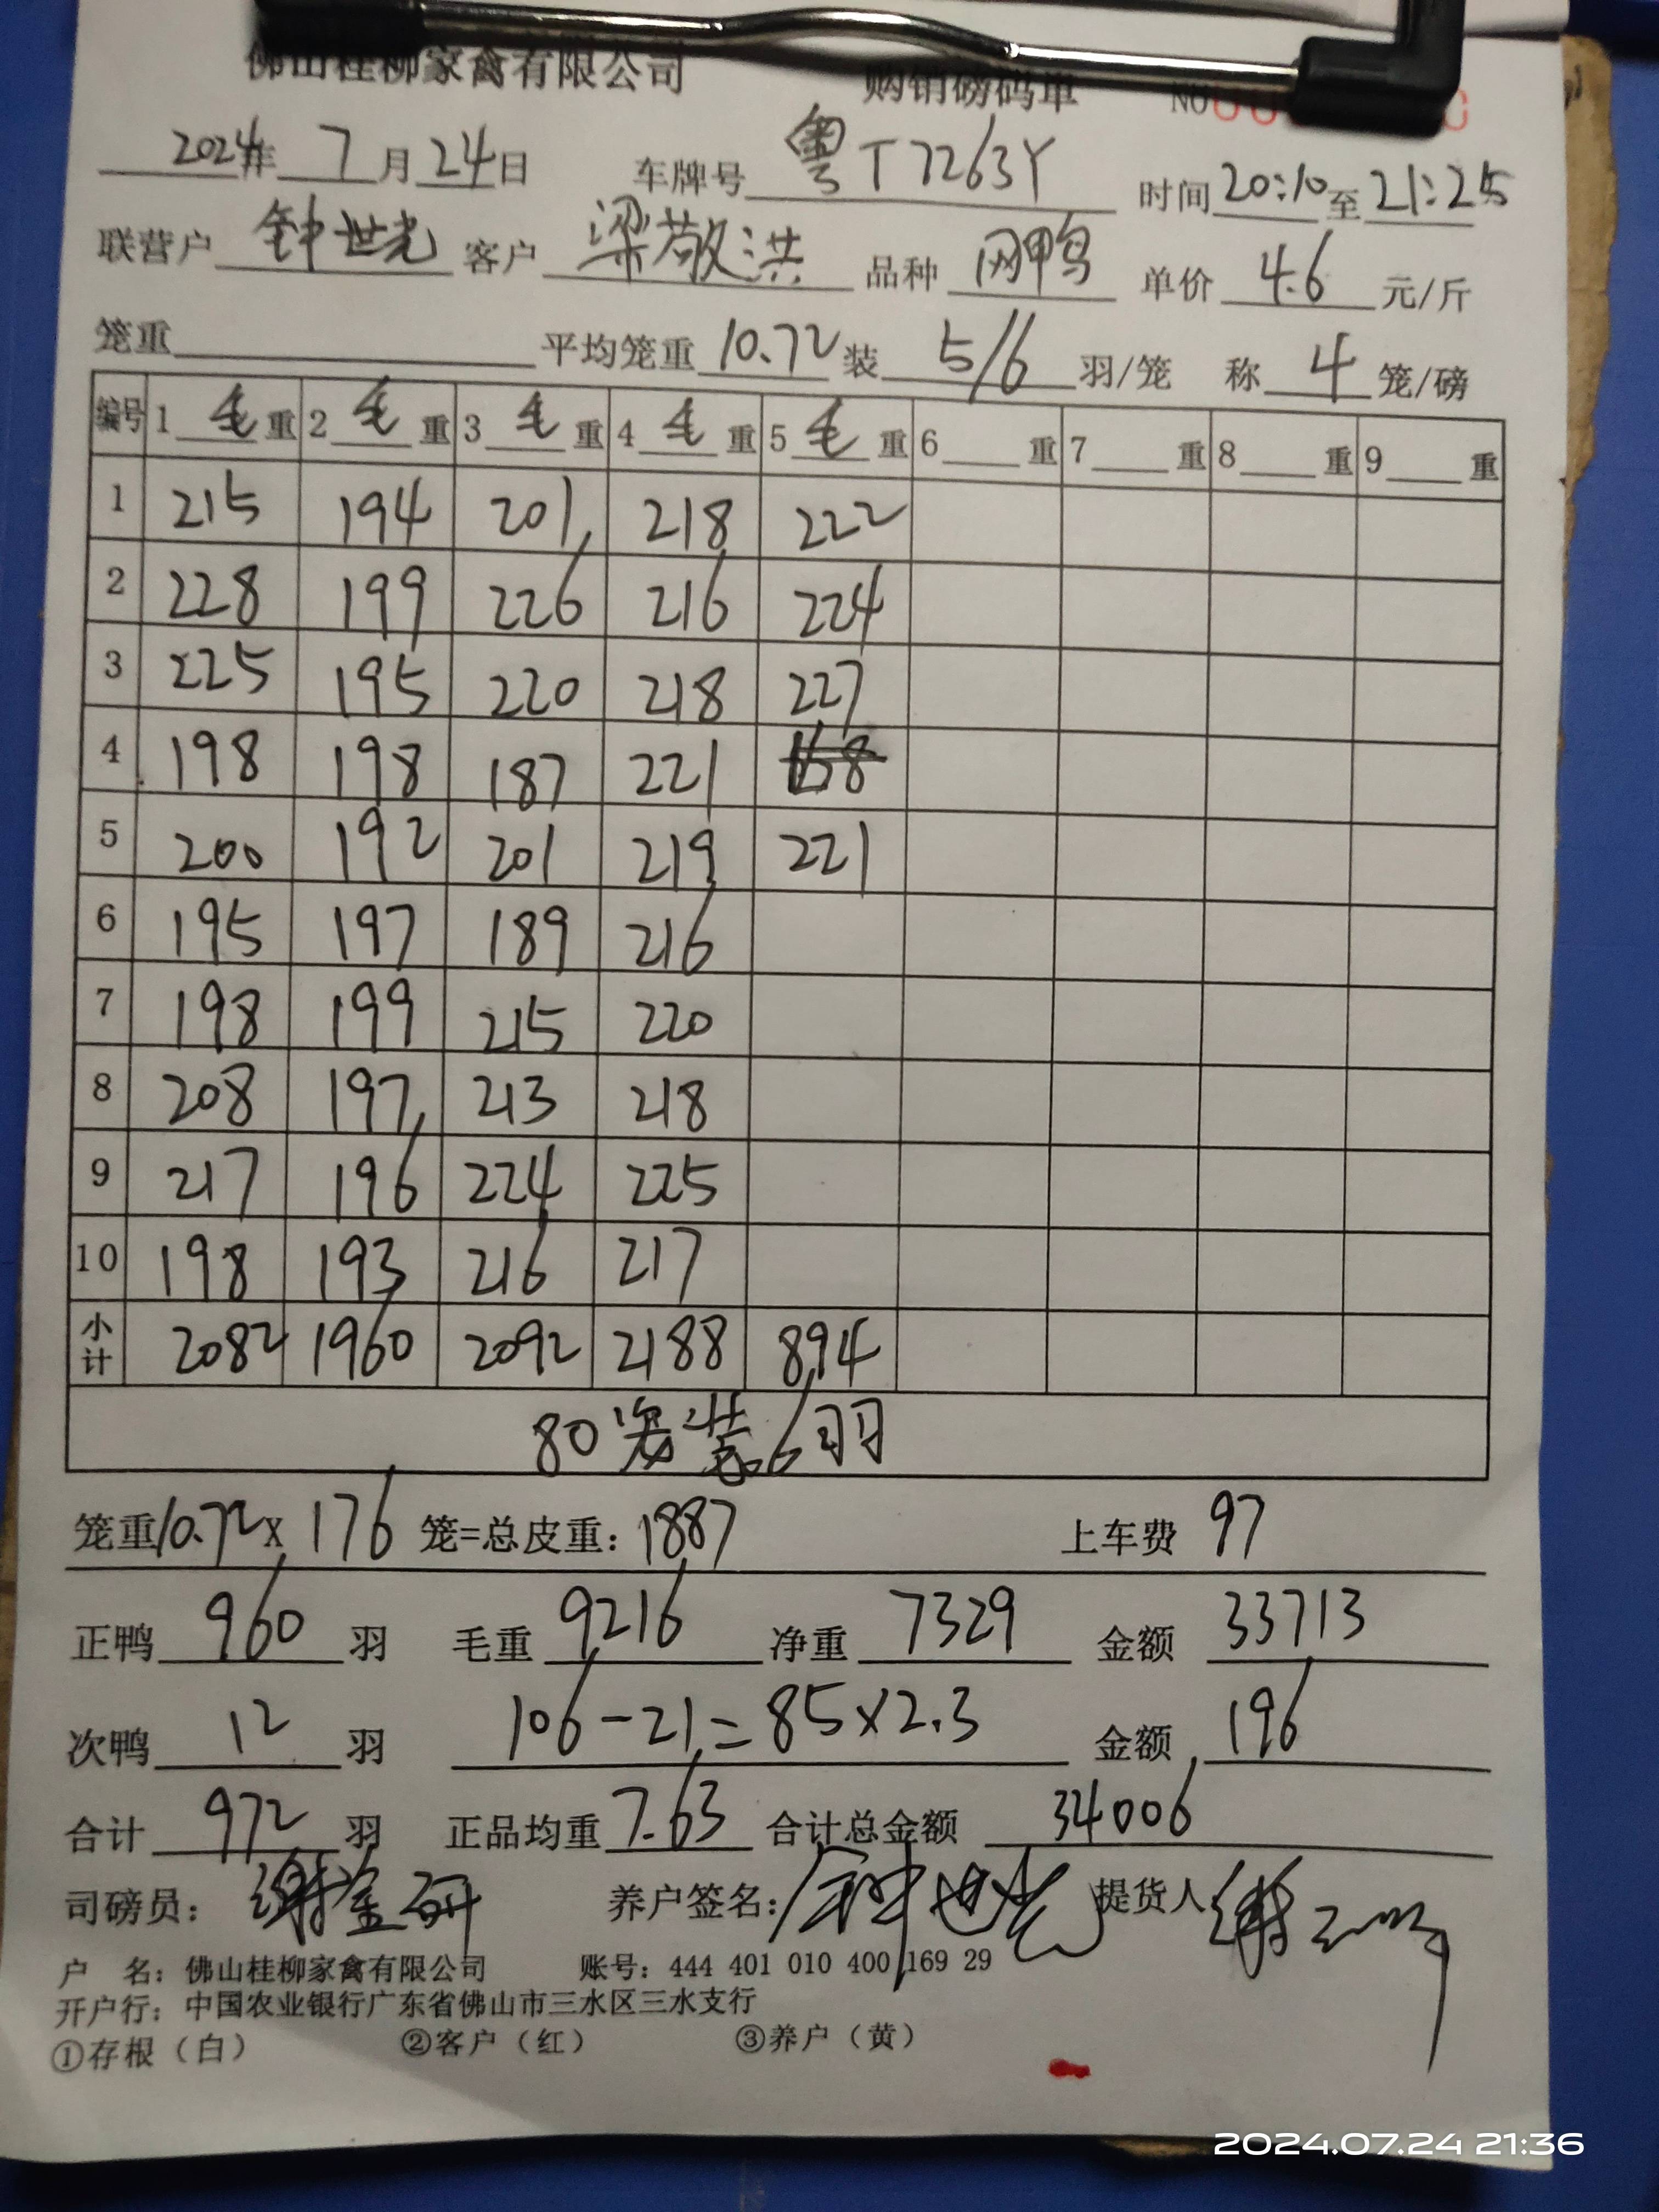 佛山桂柳家禽有限公司 购销磅码单 NO
2024年 7月24日 车牌号 粤T7263Y 时间20:10至21:25
联营户 钟世光 客户 梁敬洪 品种 网鸭 单价 4.6 元/斤
笼重 平均笼重 10.72 装 5/6 羽/笼 称 4 笼/磅
编号 1 毛 重 2 毛 重 3 毛 重 4 毛 重 5 毛 重 6 重 7 重 8 重 9 重
1 215 194 201 218 222
2 228 199 226 216 224
3 225 195 220 218 227
4 198 198 187 221
5 200 192 201 219 221
6 195 197 189 216
7 198 199 215 220
8 208 197 213 218
9 217 196 224 225
10 198 193 216 217
小计 2082 1960 2092 2188 894
80 装6羽
笼重10.72X 176 笼=总皮重：1887 上车费 97
正鸭 960 羽 毛重 9216 净重 7329 金额 33713
次鸭 12 羽 106-21=85×2.3 金额 196
合计 972 羽 正品均重 7.63 合计总金额 34006
司磅员： 养户签名：钟世光 提货人
户 名：佛山桂柳家禽有限公司 账号：444 401 010 400 169 29
开户行：中国农业银行广东省佛山市三水区三水支行
①存根（白） ②客户（红） ③养户（黄）
2024.07.24 21:36